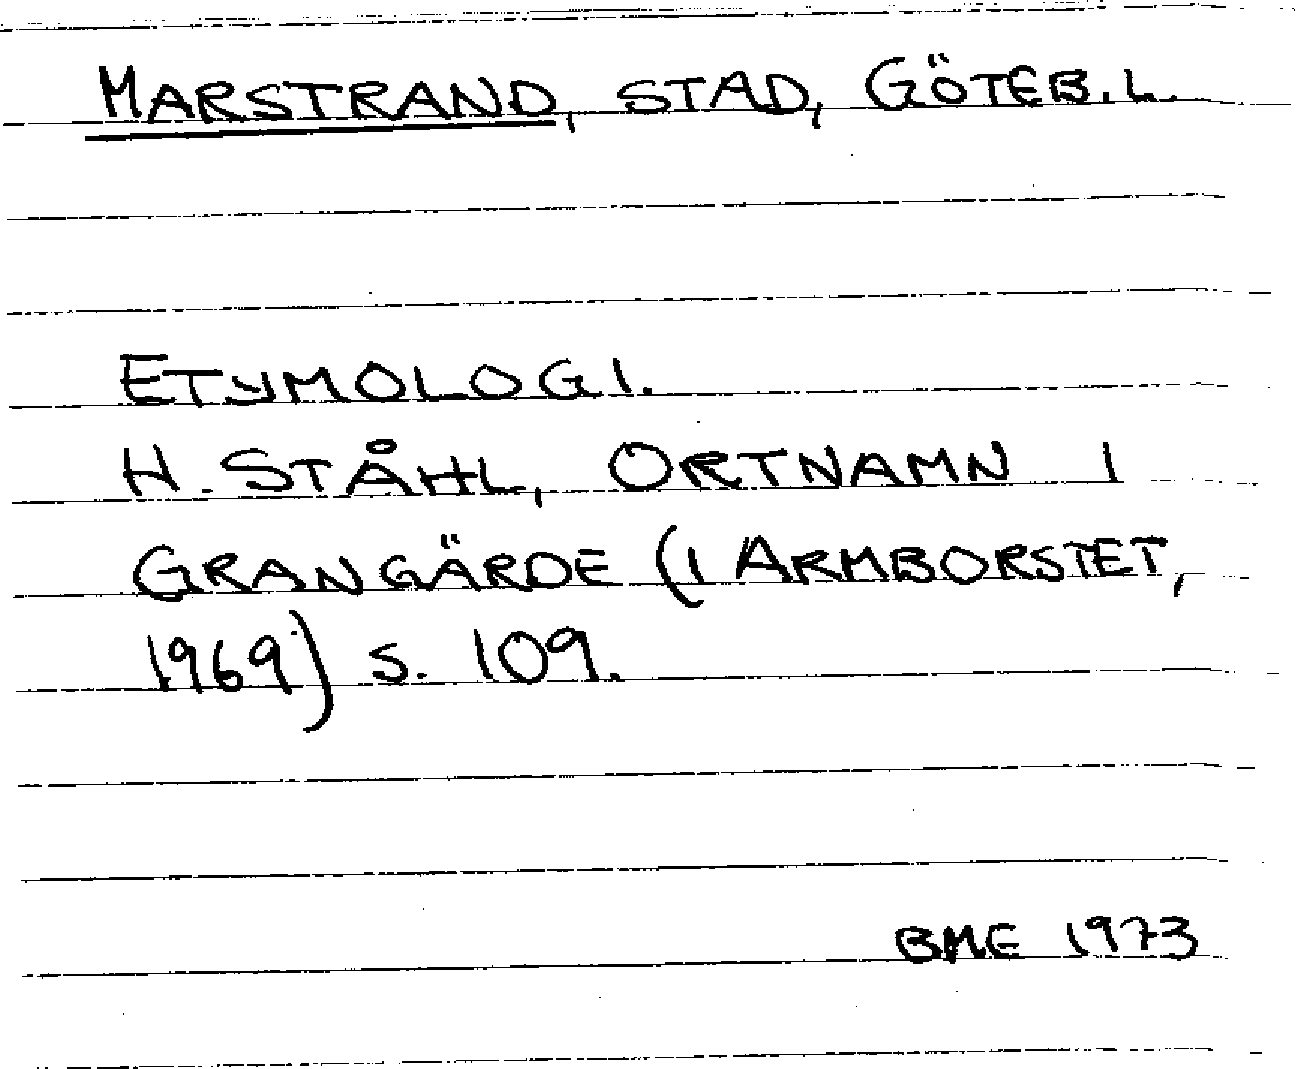 MARSTRAND, STAD, GÖTEB.L.
ETYMOLOGI.
H. STÅHL, ORTNAMN I
GRANGÄRDE (I ARMBORSTET,
1969) S. 109.
BME 1973